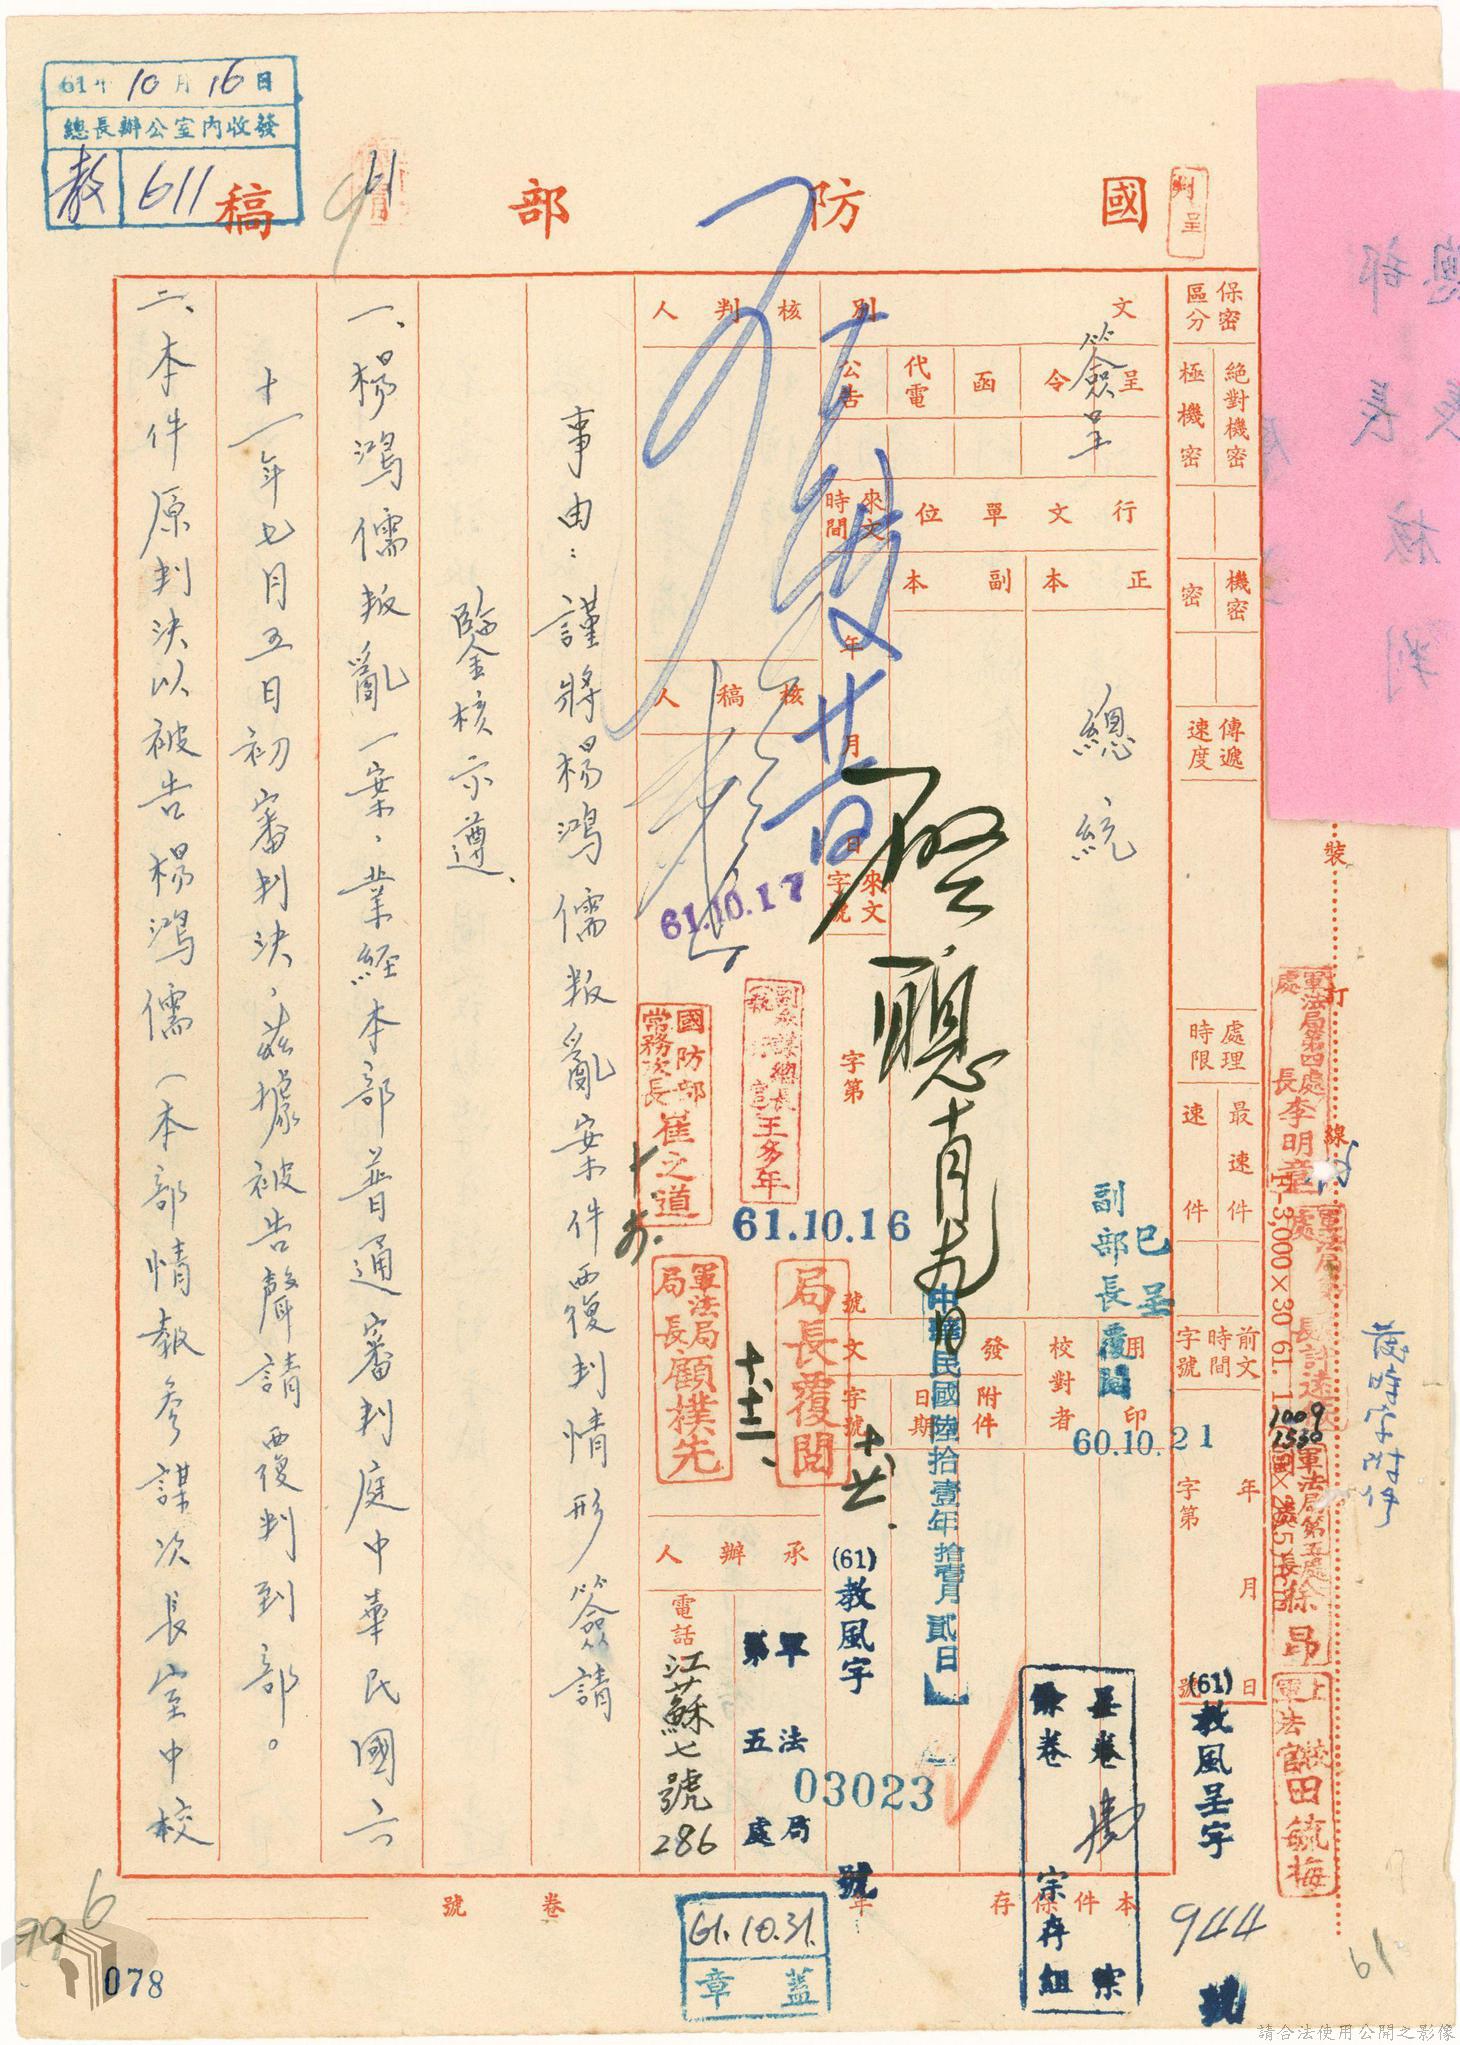 國防部稿
61年10月16日
總長辦公室內收發
教 611
判呈
保密區分
絕對機密
極機密
機密
密
傳遞速度
處理時限
最速件
速件
前文時間字號
年
月
日
字第
號
(61)教風呈字
944
號
文別
簽呈
呈
令
函
代電
公告
行文單位
正本
副本
總統
來文時間
年
月
日
來文字號
字第
號
用印
校對者
發文
附件
日期
字號
已呈
副部長覆閱
60.10.21
中華民國陸拾壹年拾壹月貳日
(61)教風字
03023
號
核判人
核稿人
61.10.17
61.10.16
副參謀總長執行官王多年
國防部常務次長崔之道
局長覆閱
軍法局局長顧樸先
承辦人
軍法局
第五處
電話
江蘇七號
286
事由：謹將楊鴻儒叛亂案件覆判情形簽請
鑒核示遵、
一、楊鴻儒叛亂一案，業經本部普通審判庭中華民國六
十一年七月五日初審判決，茲據被告聲請覆判到部。
二、本件原判決以被告楊鴻儒（本部情報參謀次長室中校
裝
訂
線
軍法局第四處處長李明章
軍法局第五處
徐昂
上校軍法官田毓梅
1009
1530
本件保存
年
卷號
宗存組
61.10.31.
蓋章
6
078
請合法使用公開之影像